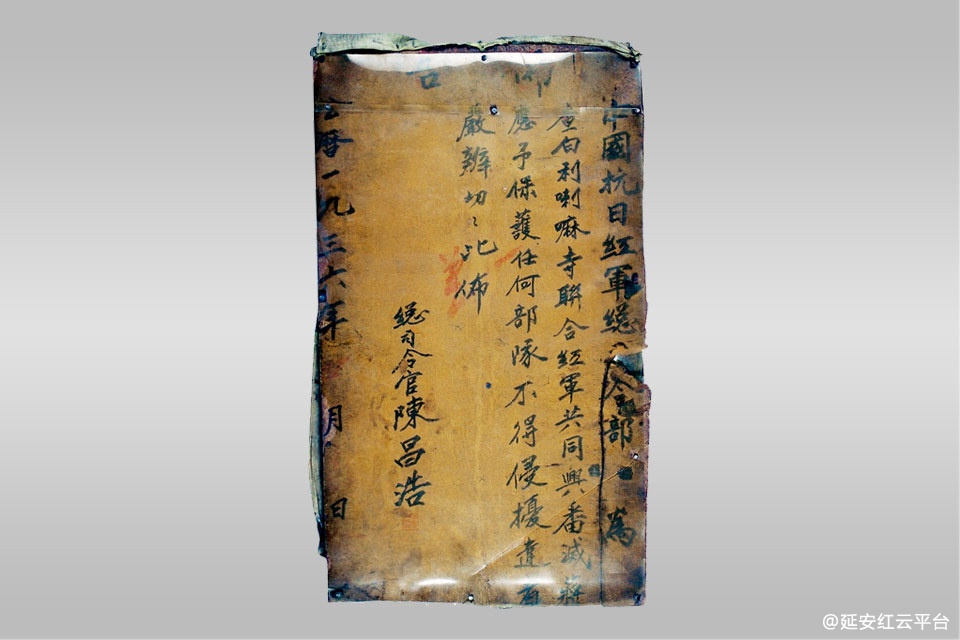 佈告
中國抗日紅軍總司令部 為
查白利喇嘛寺聯合紅軍共同興番滅蔣
應予保護任何部隊不得侵擾違者
嚴辦切々此佈
總司令官陳昌浩
公曆一九三六年 月 日
@延安红云平台